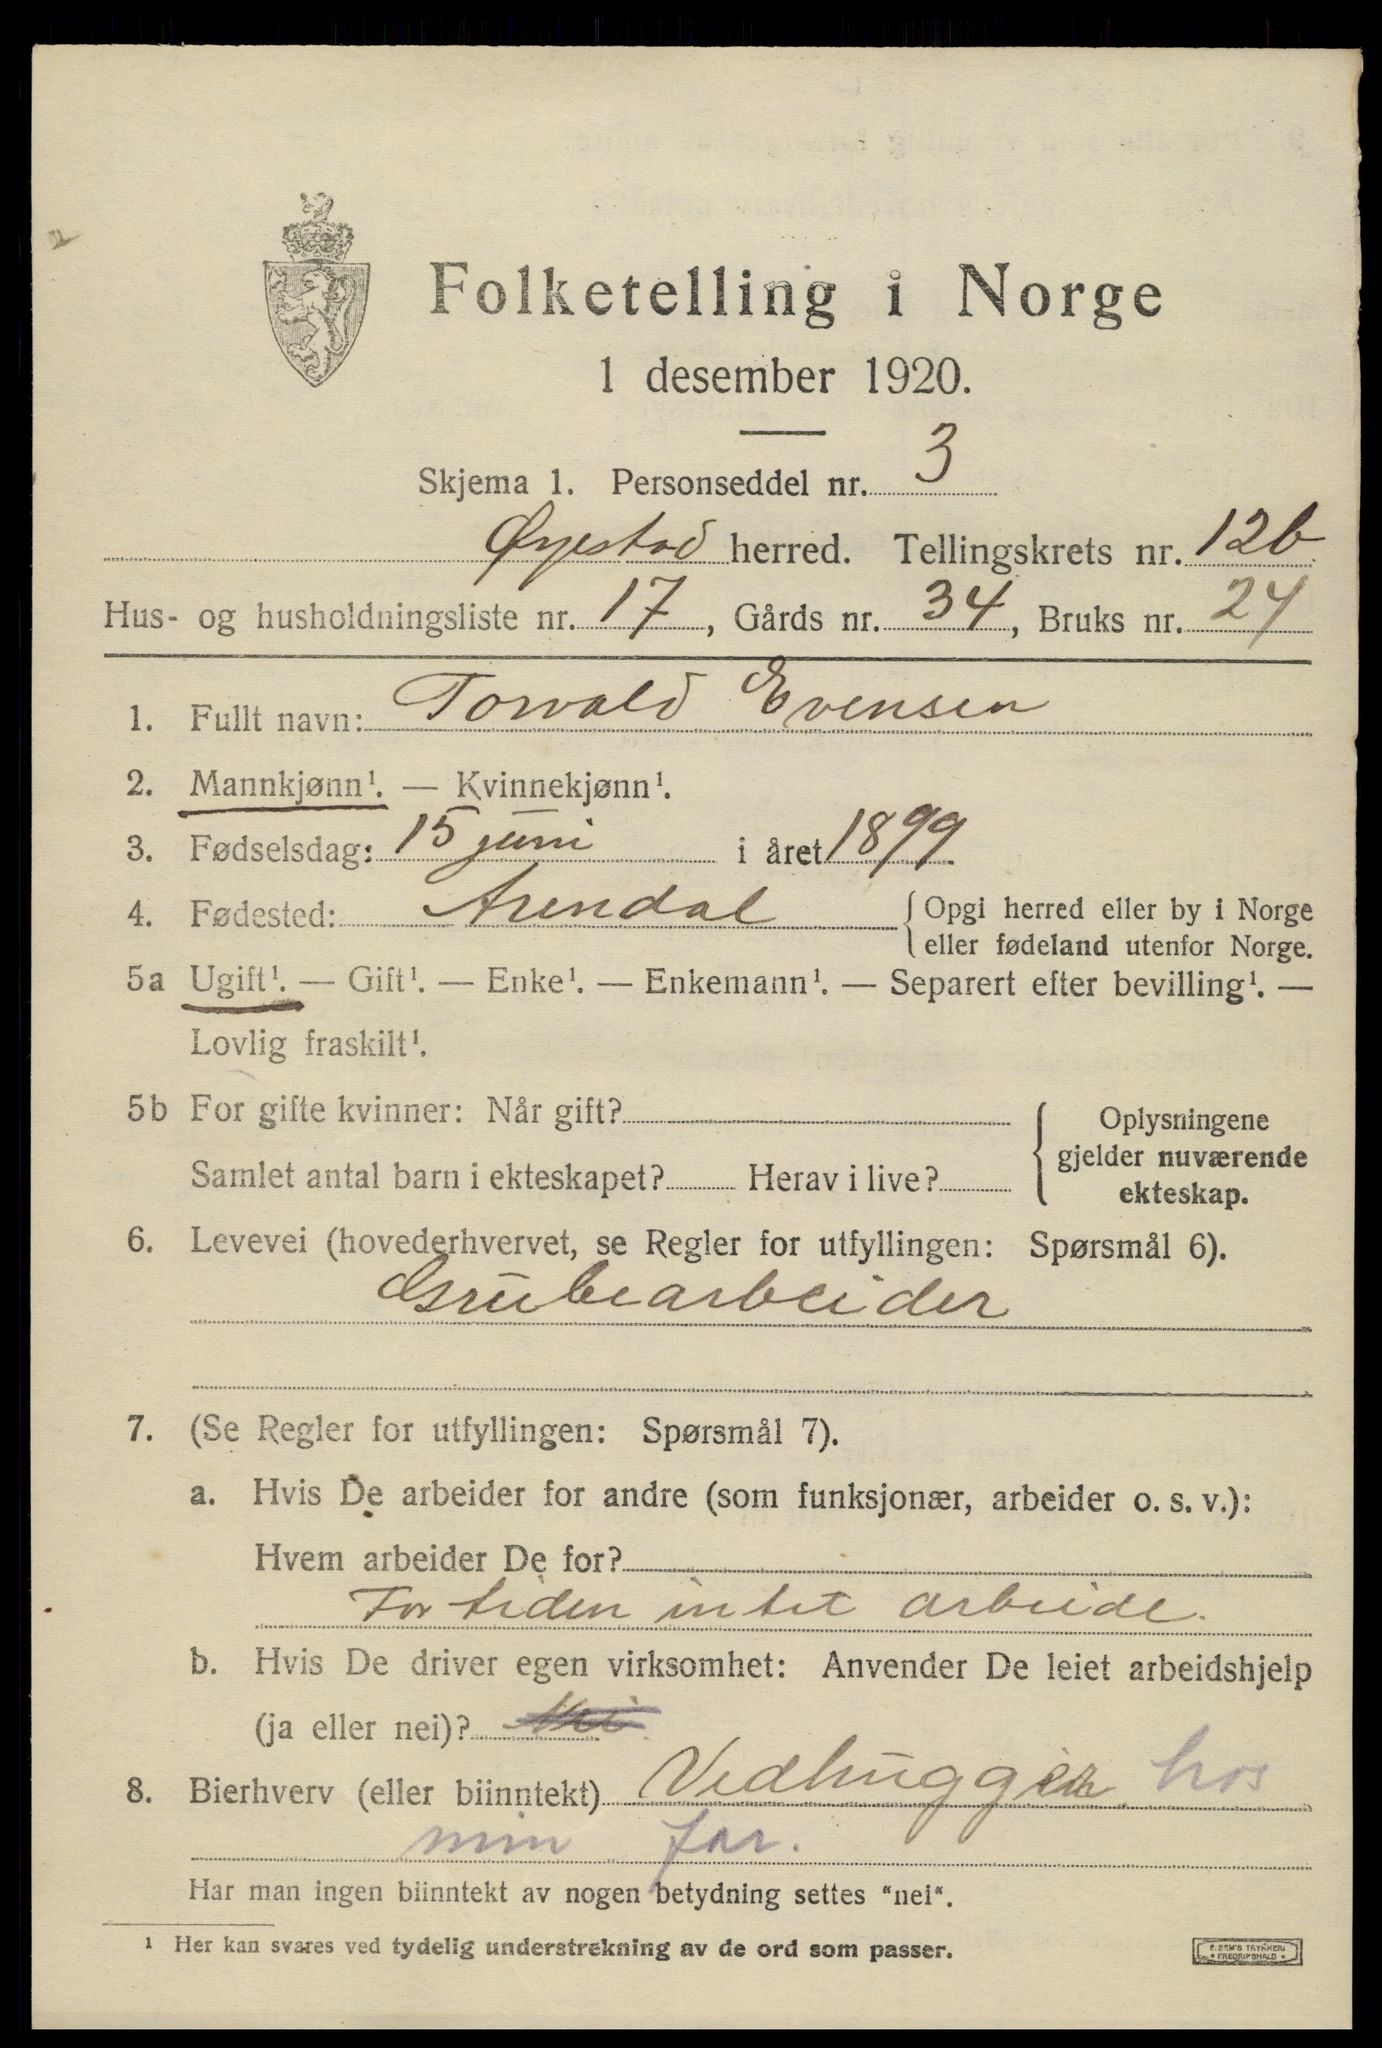 2
Folketelling i Norge
1 desember 1920.
Skjema 1. Personseddel nr. 3
Øyestad herred. Tellingskrets nr. 12b
Hus- og husholdningsliste nr. 17, Gårds nr. 34, Bruks nr. 24
1. Fullt navn: Torvald Evensen
2. Mannkjønn¹. — Kvinnekjønn¹.
3. Fødselsdag: 15 juni i året 1899.
4. Fødested: Arendal { Opgi herred eller by i Norge
eller fødeland utenfor Norge.
5a Ugift¹. — Gift¹. — Enke¹. — Enkemann¹. — Separert efter bevilling¹. —
Lovlig fraskilt¹.
5b For gifte kvinner: Når gift?
Samlet antal barn i ekteskapet? Herav i live?
Oplysningene
gjelder nuværende
ekteskap.
6. Levevei (hovederhvervet, se Regler for utfyllingen: Spørsmål 6).
Grubearbeider
7. (Se Regler for utfyllingen: Spørsmål 7).
a. Hvis De arbeider for andre (som funksjonær, arbeider o. s. v.):
Hvem arbeider De for?
For tiden intet arbeide.
b. Hvis De driver egen virksomhet: Anvender De leiet arbeidshjelp
(ja eller nei)? Nei
8. Bierhverv (eller biinntekt) Vedhugger hos
min far.
Har man ingen biinntekt av nogen betydning settes "nei".
¹ Her kan svares ved tydelig understrekning av de ord som passer.
E. SEM'S TRYKKERI
* FREDRIKSHALD *